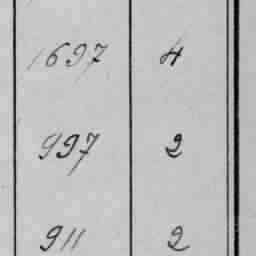 1697 4
997 2
911 2